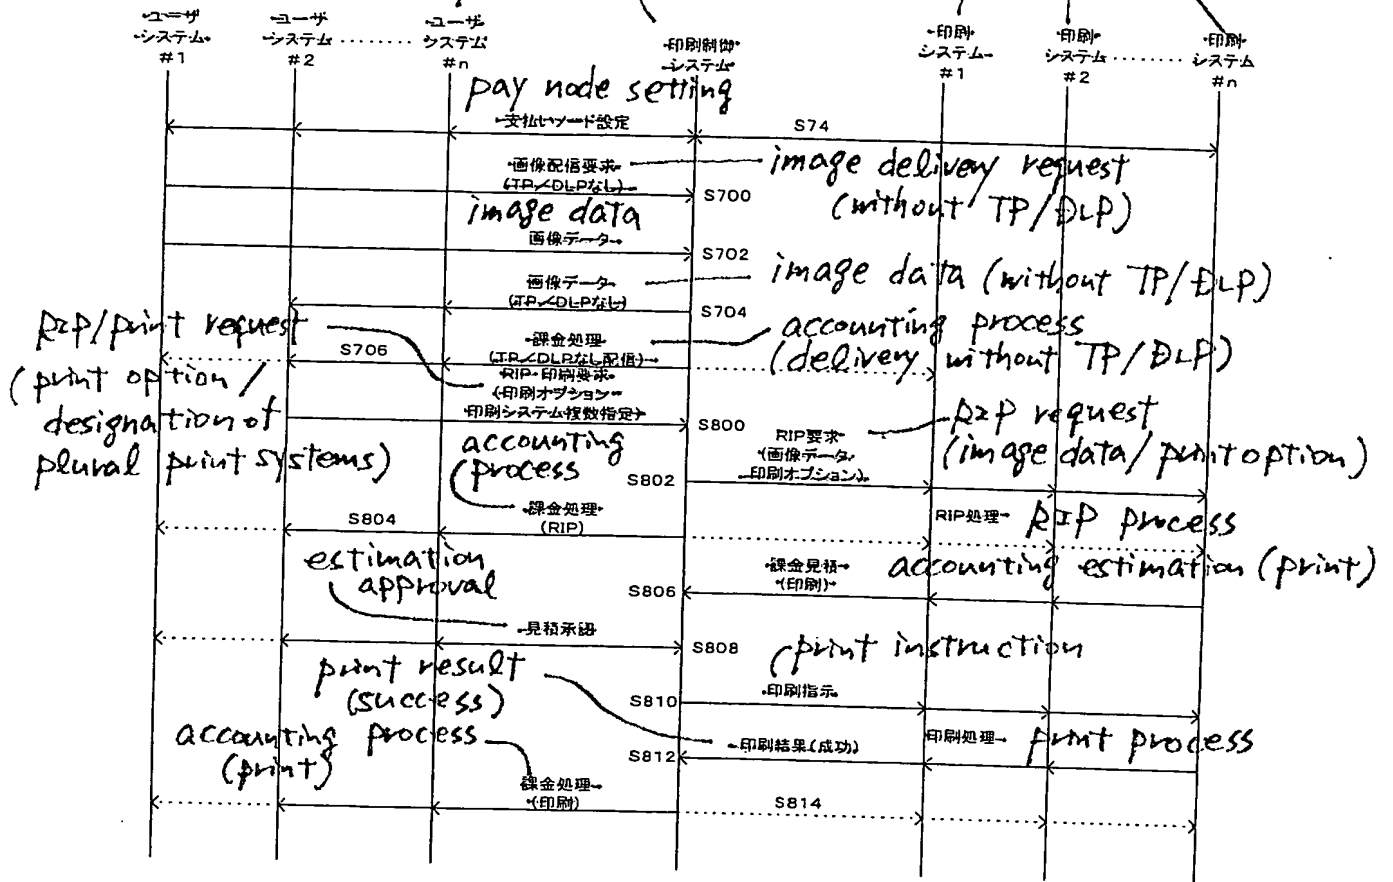 ユーザ
システム
#1
ユーザ
システム
#2
ユーザ
システム
#n
印刷制御
システム
印刷
システム
#1
印刷
システム
#2
印刷
システム
#n
pay node setting
支払いノード設定
S74
画像配信要求
(TP/DLPなし)
S700
image delivery request
(without TP/DLP)
image data
画像データ
S702
画像データ
(TP/DLPなし)
S704
image data (without TP/DLP)
課金処理
(TP/DLPなし配信)
S706
accounting process
(delivery without TP/DLP)
RIP/print request
(print option/
designation of
plural print systems)
RIP・印刷要求
(印刷オプション
印刷システム複数指定)
S800
RIP要求
(画像データ
印刷オプション)
S802
RIP request
(image data/print option)
accounting
process
課金処理
(RIP)
S804
RIP処理
RIP process
課金見積
(印刷)
S806
accounting estimation (print)
estimation
approval
見積承認
S808
print instruction
印刷指示
S810
print result
(success)
印刷結果(成功)
S812
印刷処理
print process
accounting process
(print)
課金処理
(印刷)
S814